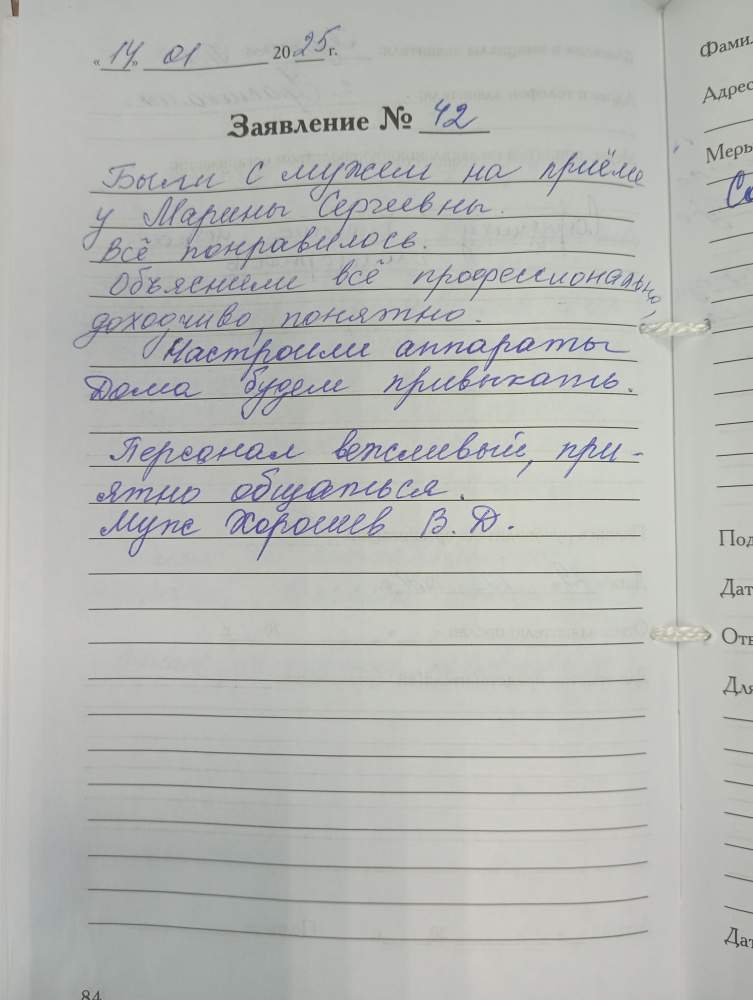 «14» 01 2025 г.
Заявление № 42
Были с мужем на приёме
у Марины Сергеевны.
Всё понравилось.
Объяснили всё профессионально,
доходчиво, понятно.
Настроили аппараты
Дома будем привыкать.
Персонал вежливый, при-
ятно общаться.
Муж Хорошев В. Д.
84
Фамил
Адрес
Меры
Со
Под
Дат
Отв
Для
Дат